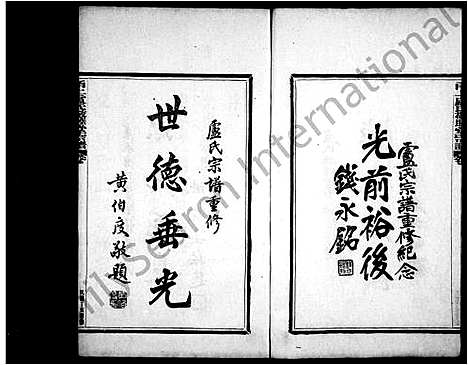 盧氏宗譜重修紀念
光前裕後
錢永銘
盧氏宗譜重修
世德垂光
黃伯度敬題
FamilySearch International